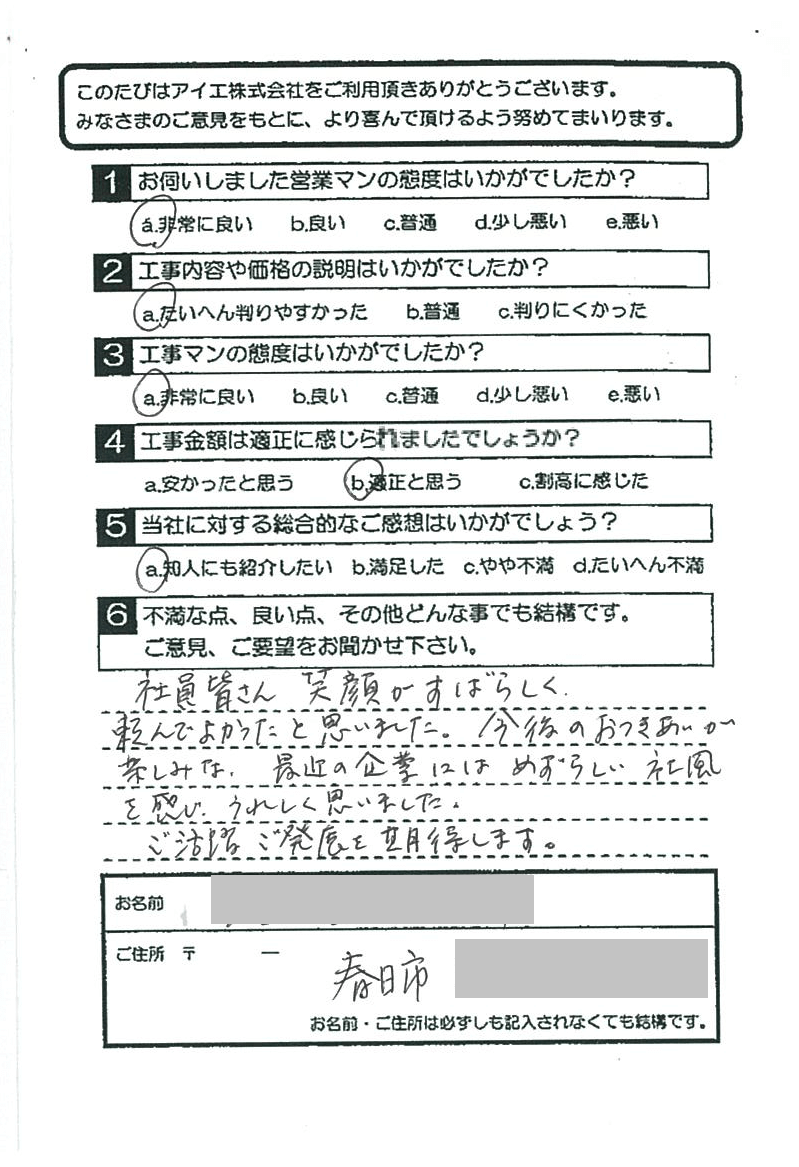 このたびはアイエ株式会社をご利用頂きありがとうございます。
みなさまのご意見をもとに、より喜んで頂けるよう努めてまいります。
1 お伺いしました営業マンの態度はいかがでしたか？
a.非常に良い b.良い c.普通 d.少し悪い e.悪い
2 工事内容や価格の説明はいかがでしたか？
a.たいへん判りやすかった b.普通 c.判りにくかった
3 工事マンの態度はいかがでしたか？
a.非常に良い b.良い c.普通 d.少し悪い e.悪い
4 工事金額は適正に感じられましたでしょうか？
a.安かったと思う b.適正と思う c.割高に感じた
5 当社に対する総合的なご感想はいかがでしょう？
a.知人にも紹介したい b.満足した c.やや不満 d.たいへん不満
6 不満な点、良い点、その他どんな事でも結構です。
ご意見、ご要望をお聞かせ下さい。
社員皆さん 笑顔がすばらしく、
頼んでよかったと思いました。今後のおつきあいが
楽しみな、最近の企業にはめずらしい社風
を感じ、うれしく思いました。
ご活躍ご発展を期待します。
お名前
ご住所 〒 ー
春日市
お名前・ご住所は必ずしも記入されなくても結構です。